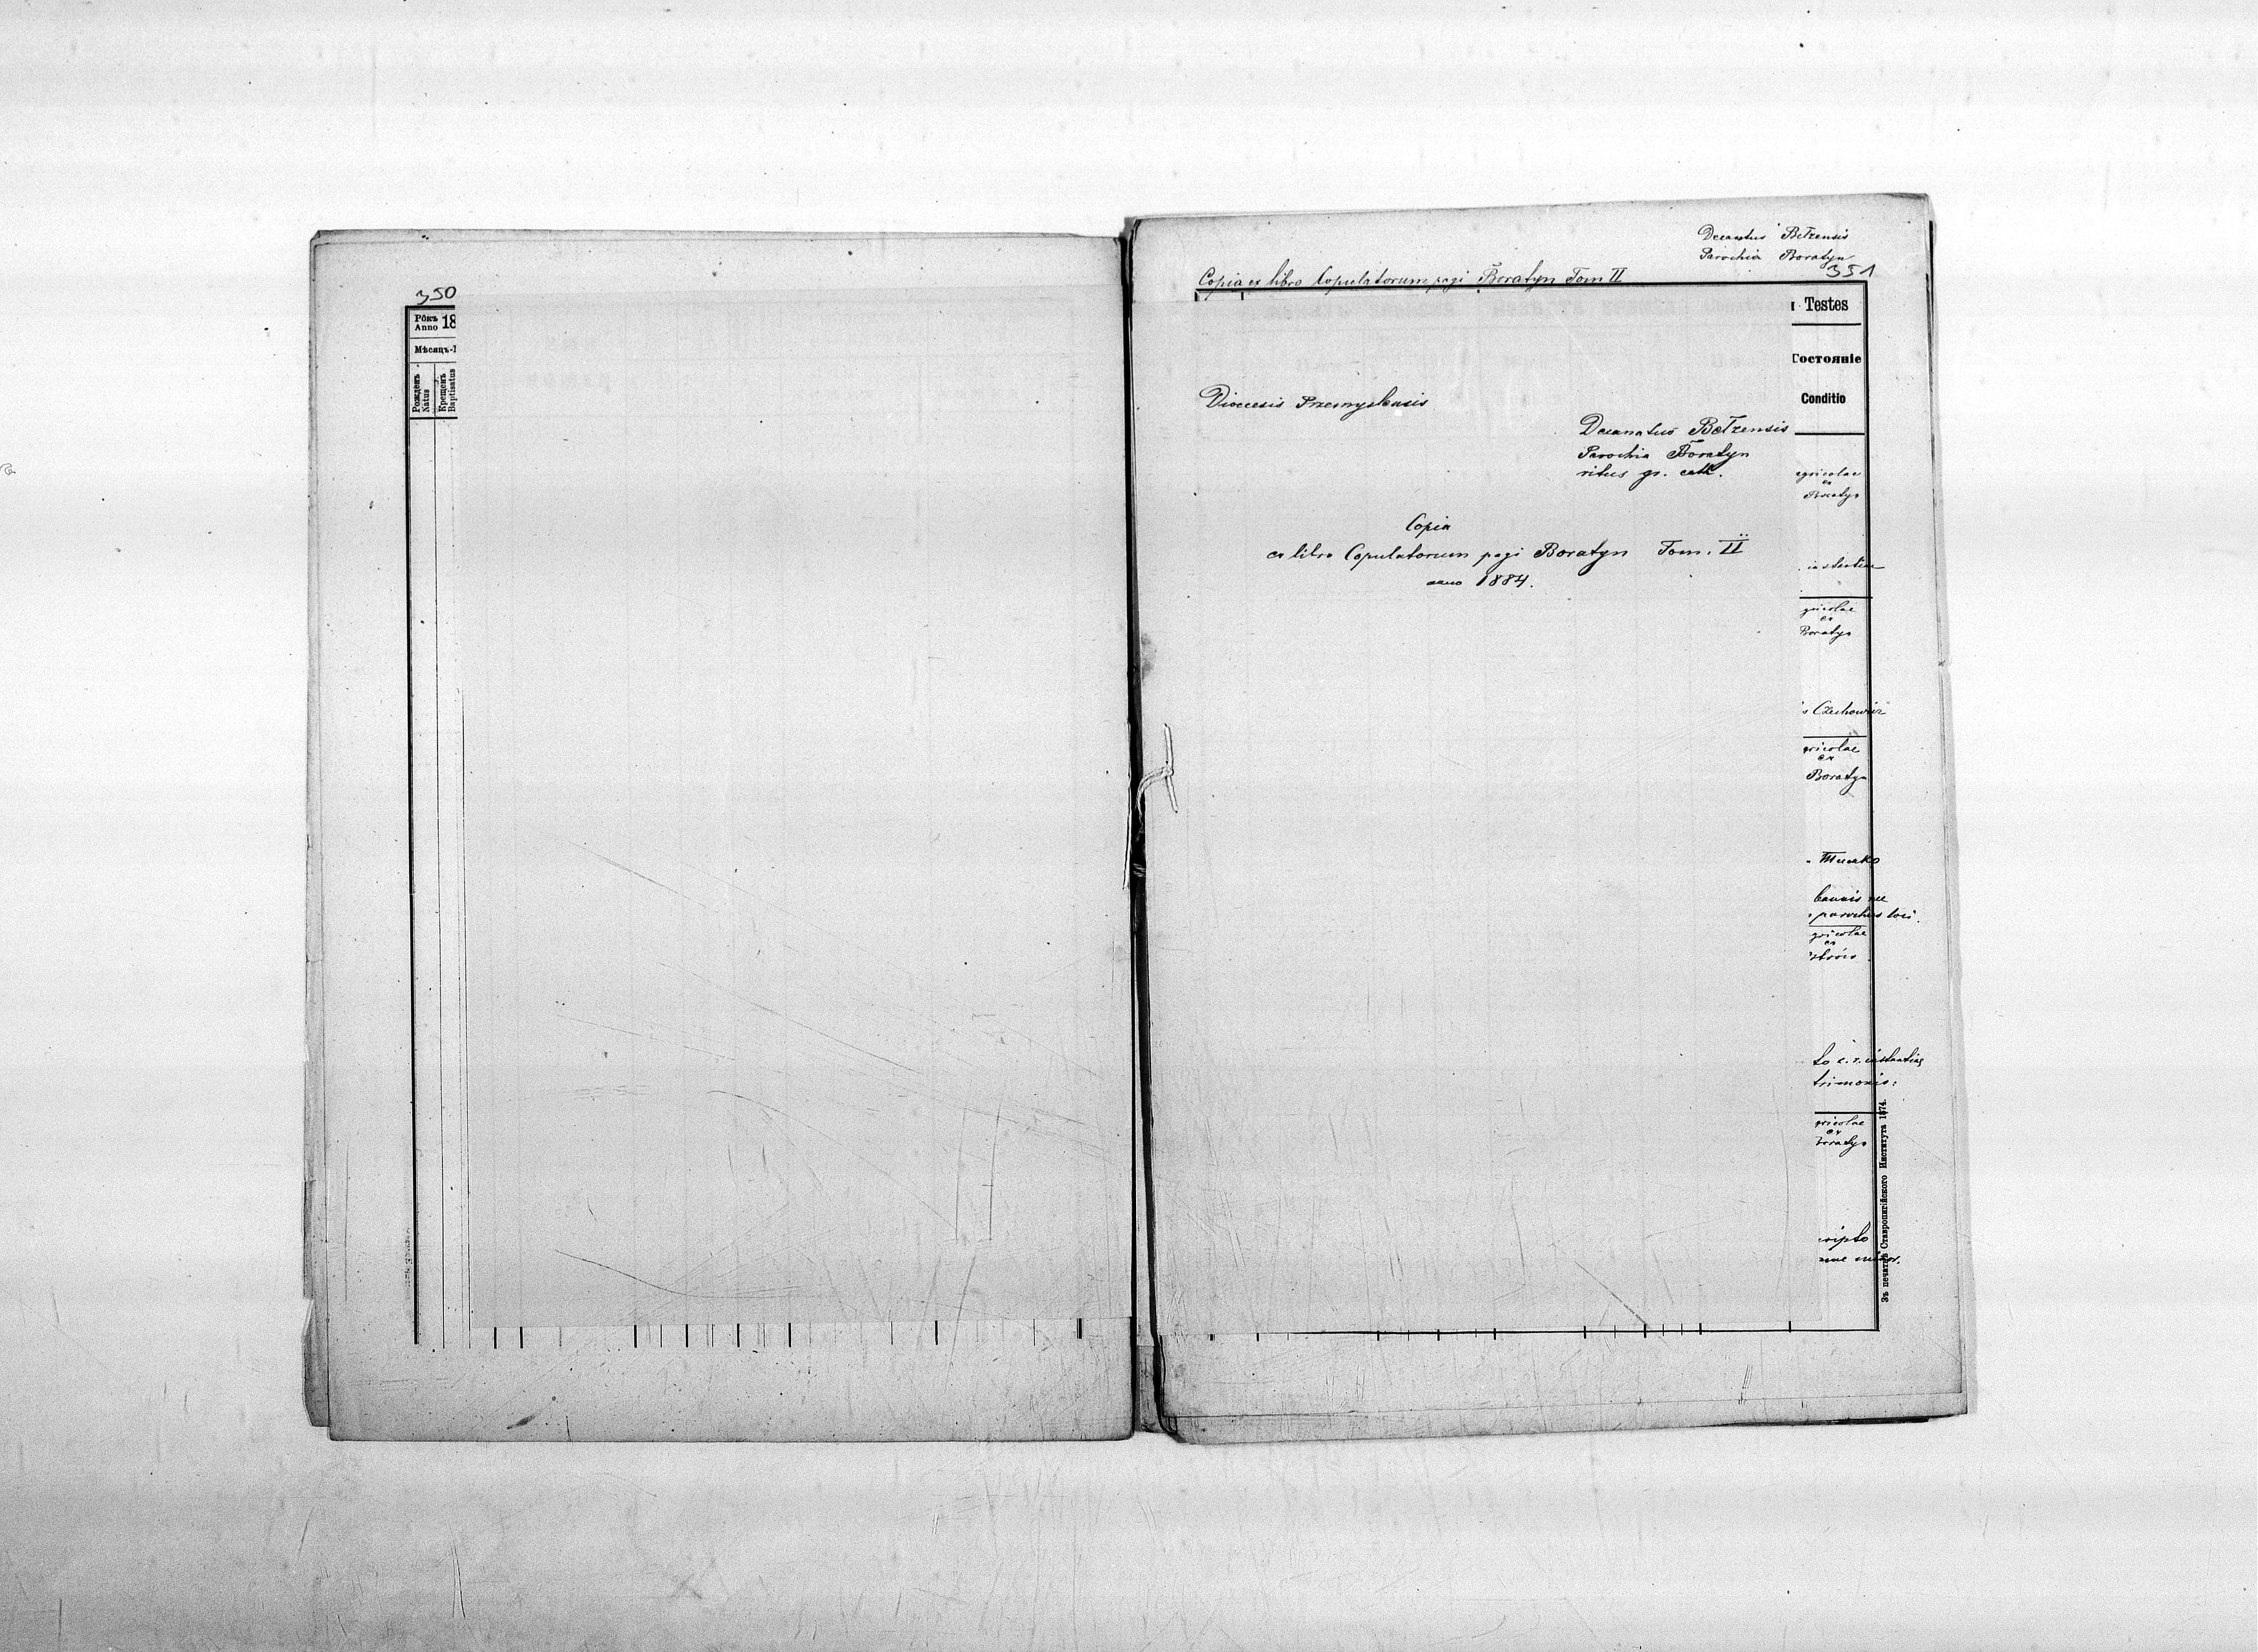 350
Рôкъ
Anno 18
Мѣсяцъ-
Рожденъ
Natus
Крещенъ
Baptisatus
Decanatus Bełzensis
Parochia Boratyn
351
Copia ex libro Copulatorum pagi Boratyn Tom II
Testes
Состояніе
Conditio
Dioecesis Przemyslensis
Decanatus Bełzensis
Parochia Boratyn
ritus gr. cath.
Copia
ex libro Copulatorum pagi Boratyn Tom. II
anno 1884.
agricolae
ex
Boratyn
gricolae
ex
Boratyn
Czechowicz
gricolae
ex
Boratyn
parochus loci.
gricolae
ex
to c. r. instantiae
gricolae
ex
oratyn
Зъ печатнѣ Ставропигійского Института 1874.